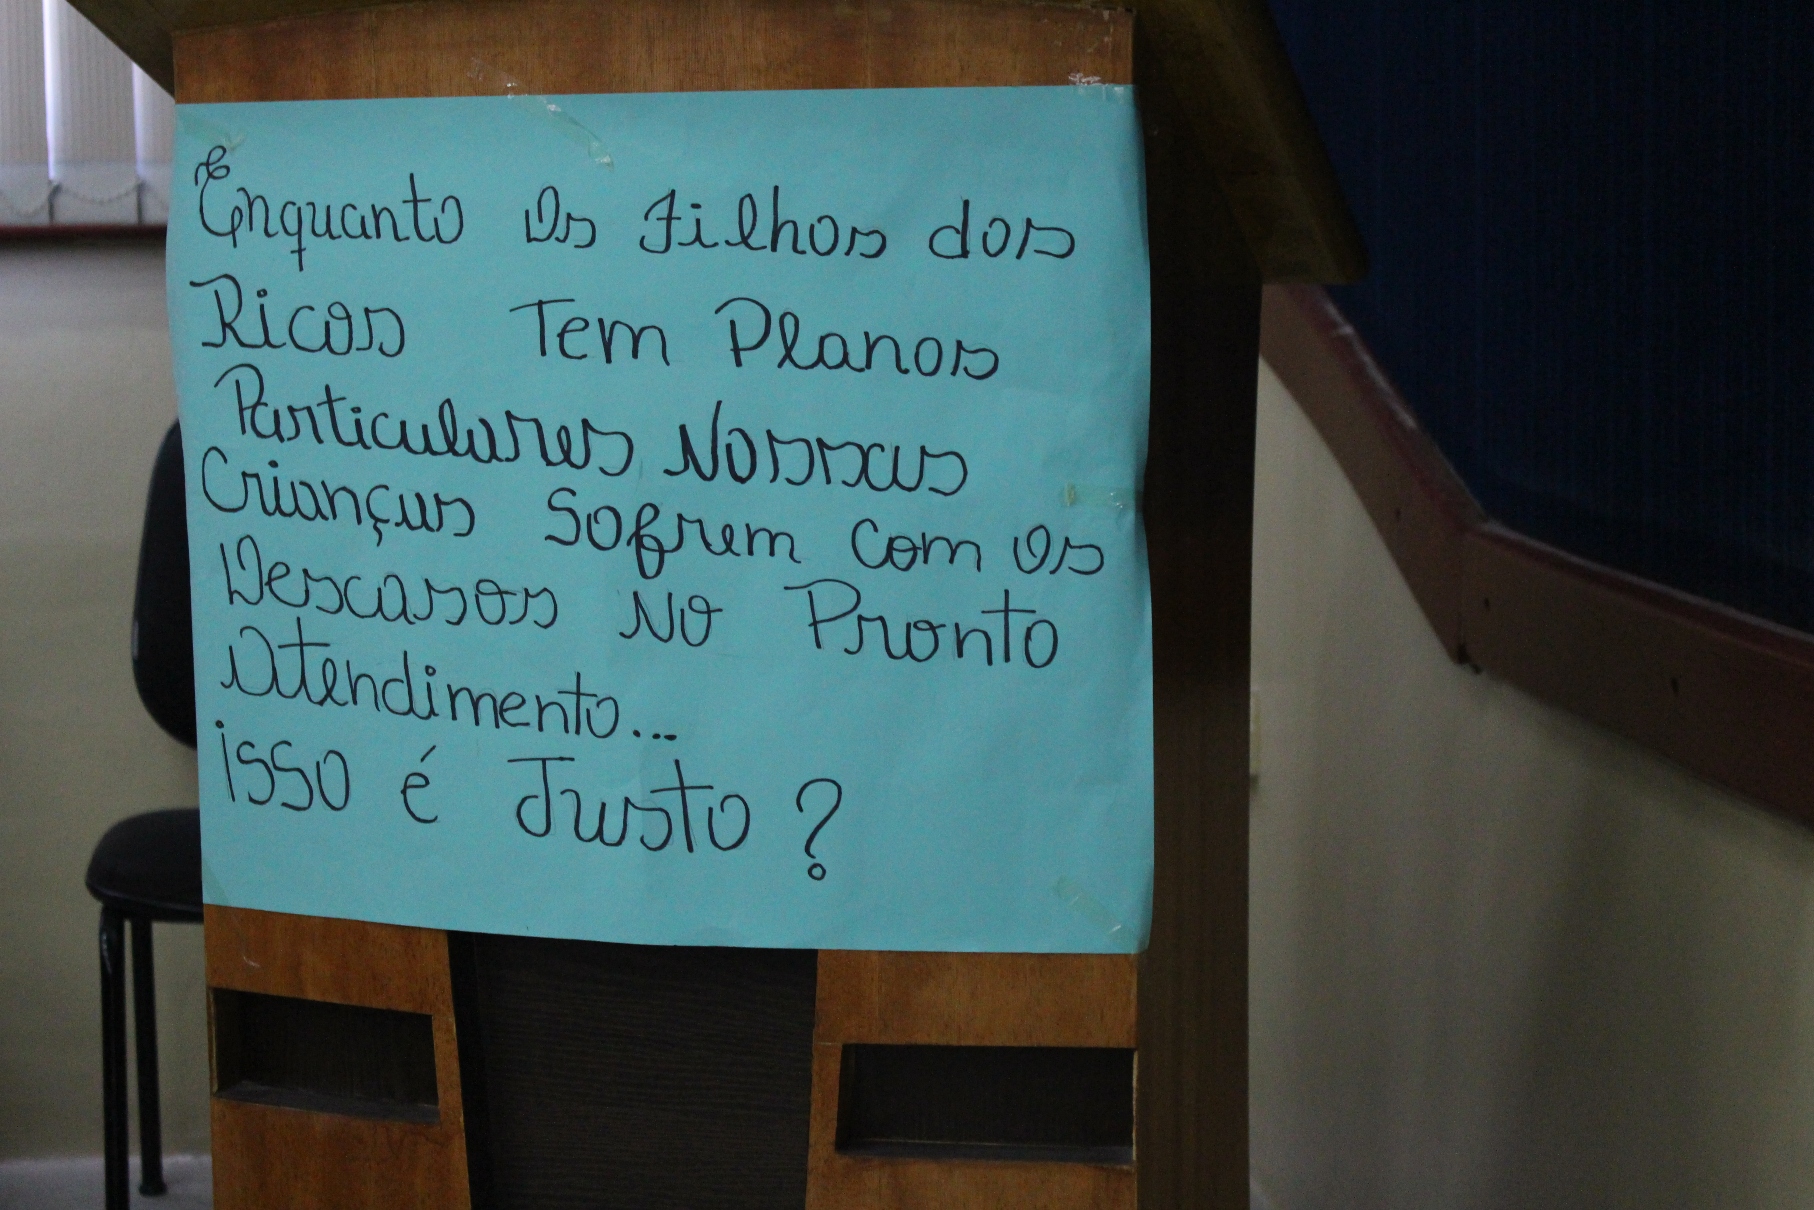 Enquanto Os Filhos dos
Ricos Tem Planos
Particulares Nossas
Crianças Sofrem com os
Descasos No Pronto
Atendimento...
isso é Justo ?